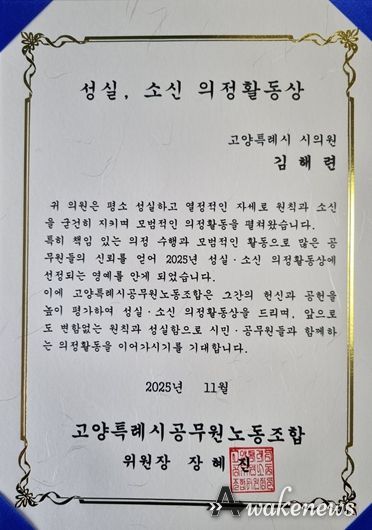 성실, 소신 의정활동상
고양특례시 시의원
김 해 련
귀 의원은 평소 성실하고 열정적인 자세로 원칙과 소신
을 굳건히 지키며 모범적인 의정활동을 펼쳐왔습니다.
특히 책임 있는 의정 수행과 모범적인 활동으로 많은 공
무원들의 신뢰를 얻어 2025년 성실·소신 의정활동상에
선정되는 영예를 안게 되었습니다.
이에 고양특례시공무원노동조합은 그간의 헌신과 공헌을
높이 평가하여 성실·소신 의정활동상을 드리며, 앞으로
도 변함없는 원칙과 성실함으로 시민·공무원들과 함께하
는 의정활동을 이어가시기를 기대합니다.
2025년 11월
고양특례시공무원노동조합
위원장 장 혜 진
Awakenews